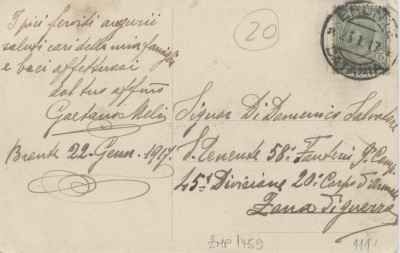 I più fervidi auguri
saluti cari della mia famiglia
e baci affettuosi
dal tuo affmo
Gaetano Meli
Bronte 22. Genn. 1917.
20
BRONTE
23.1.17
Signor Di Domenico Salvatore
S. Tenente 58° Fanteria
45ª Divisione 20° Corpo d'Armata
Zona di guerra